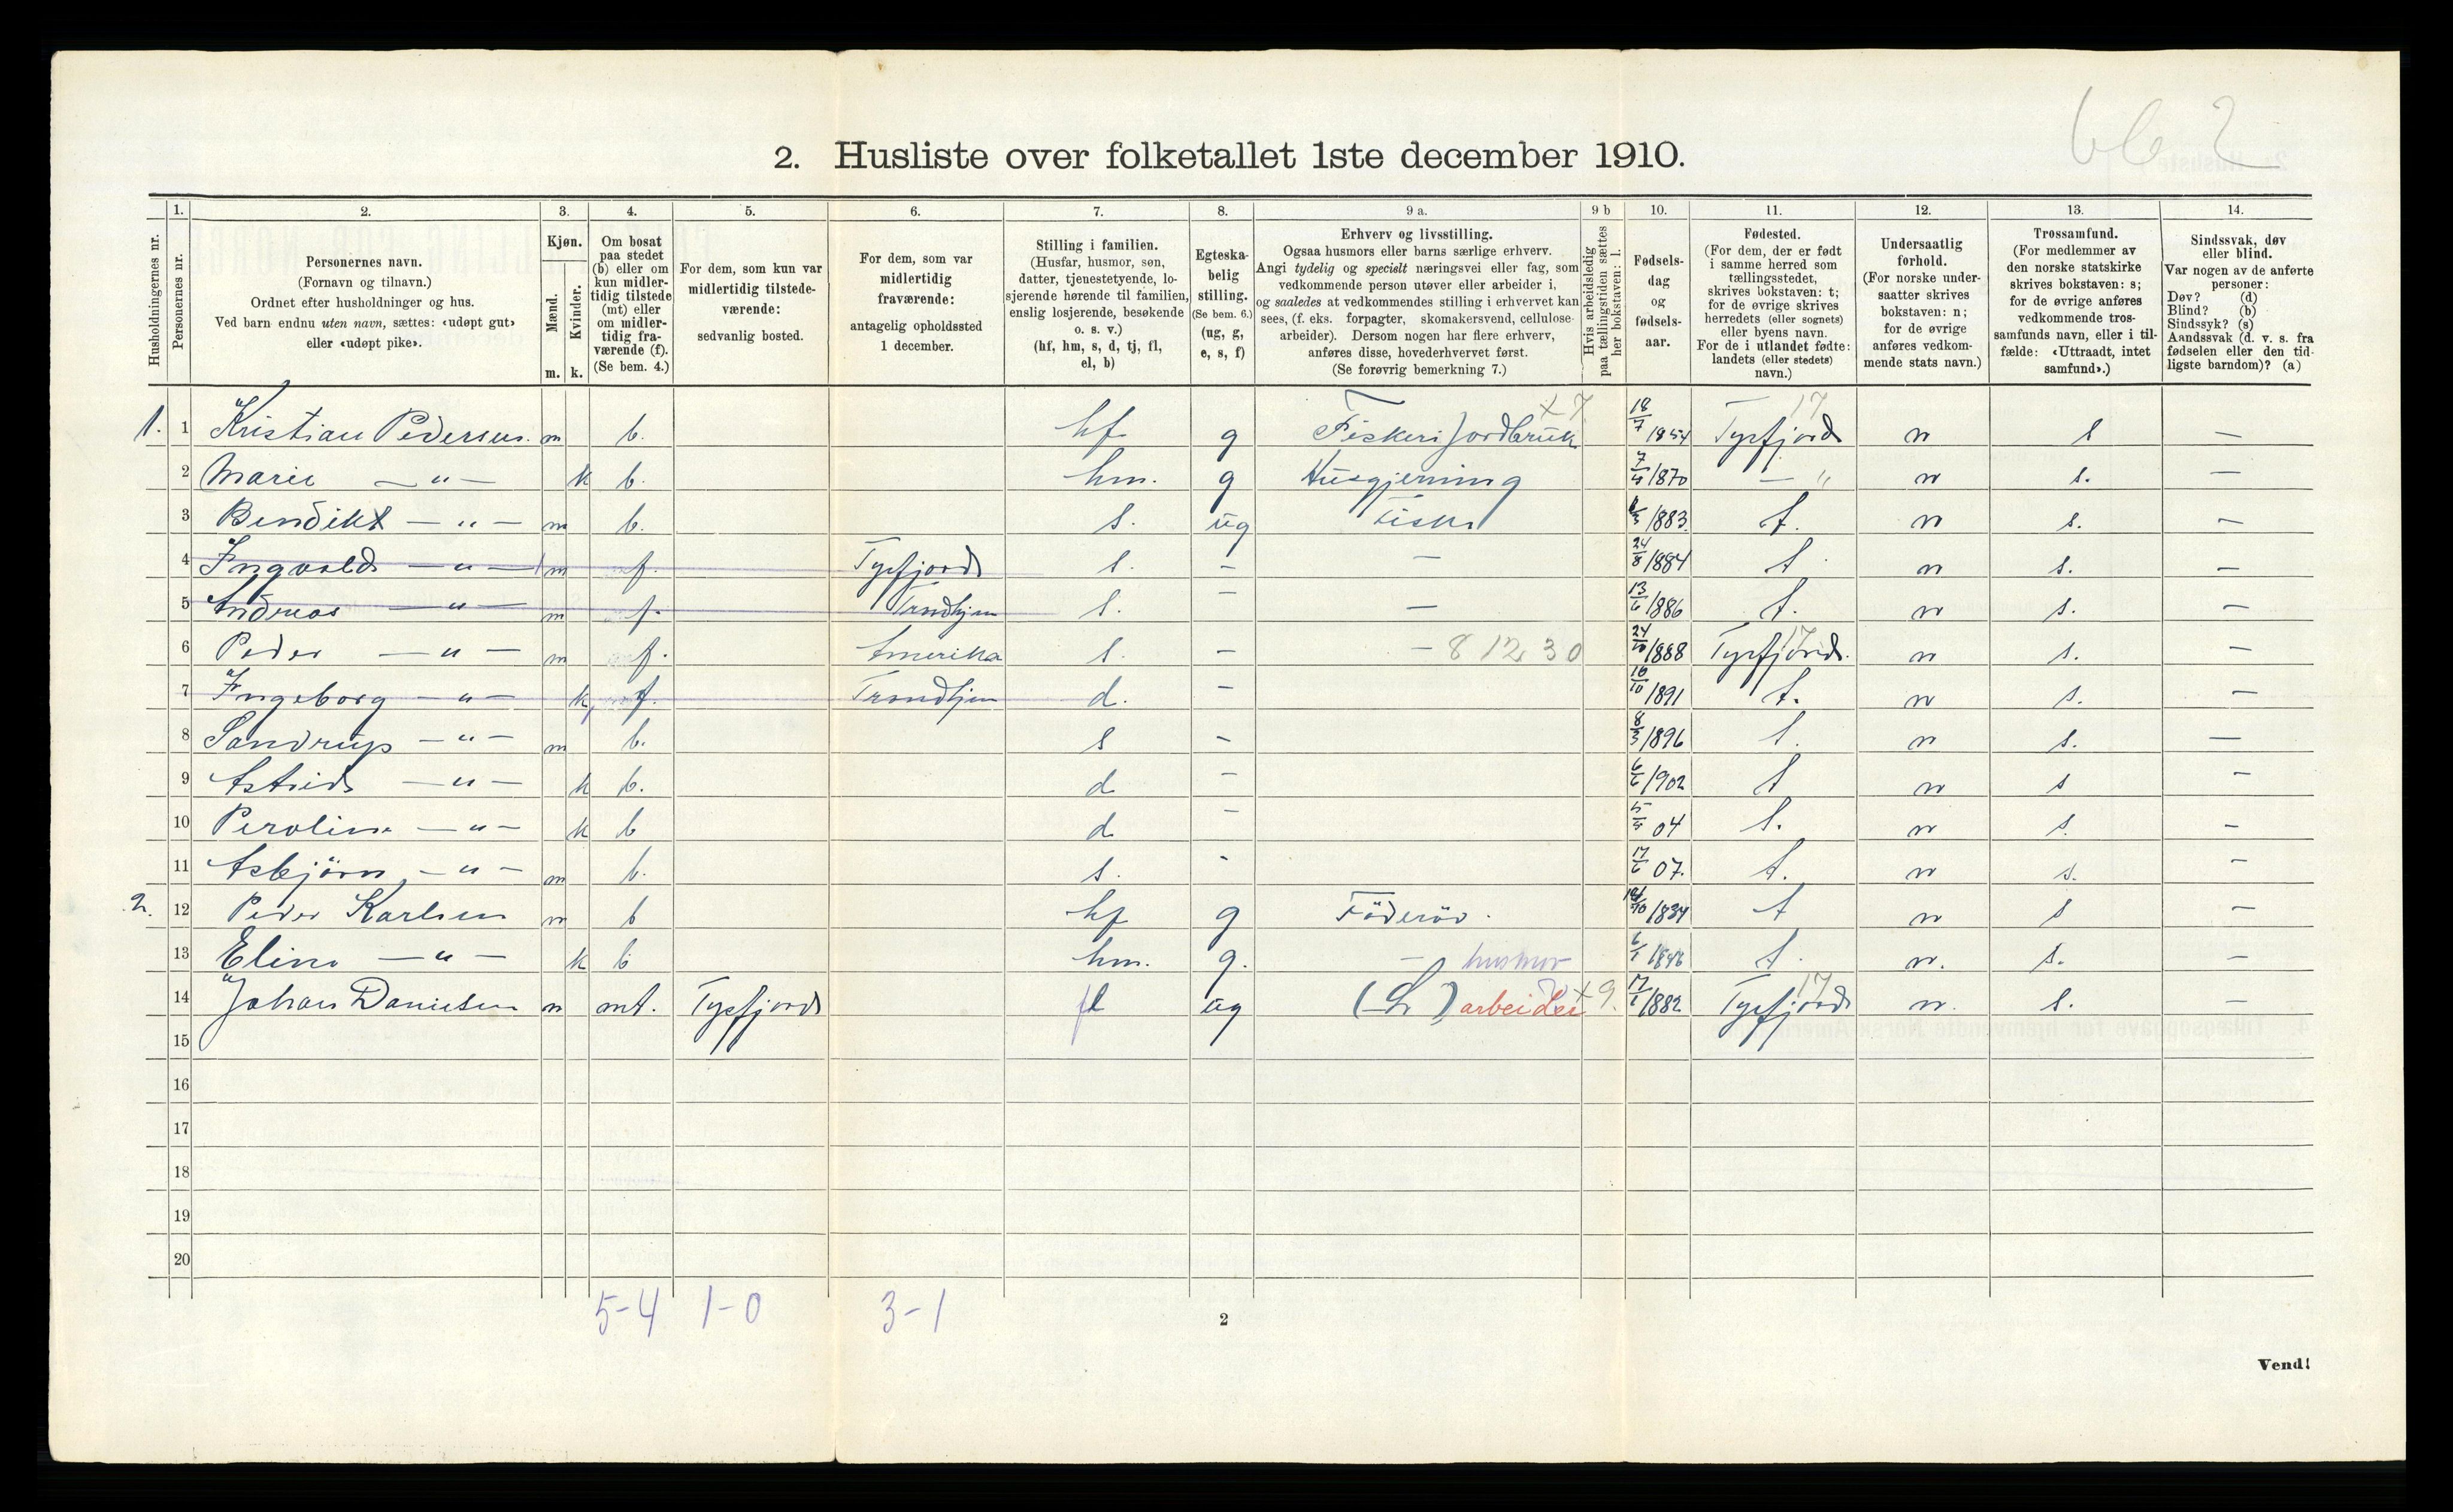 2. Husliste over folketallet 1ste december 1910.
Husholdningernes nr.
1. Personernes nr.
2. Personernes navn.
(Fornavn og tilnavn.)
Ordnet efter husholdninger og hus.
Ved barn endnu uten navn, sættes: «udøpt gut»
eller «udøpt pike».
3. Kjøn.
Mænd. m.
Kvinder. k.
4. Om bosat
paa stedet
(b) eller om
kun midler-
tidig tilstede
(mt) eller
om midler-
tidig fra-
værende (f).
(Se bem. 4.)
5. For dem, som kun var
midlertidig tilstede-
værende:
sedvanlig bosted.
6. For dem, som var
midlertidig
fraværende:
antagelig opholdssted
1 december.
7. Stilling i familien.
(Husfar, husmor, søn,
datter, tjenestetyende, lo-
sjerende hørende til familien,
enslig losjerende, besøkende
o. s. v.)
(hf, hm, s, d, tj, fl,
el, b)
8. Egteska-
belig
stilling.
(Se bem. 6.)
(ug, g,
e, s, f)
9 a. Erhverv og livsstilling.
Ogsaa husmors eller barns særlige erhverv.
Angi tydelig og specielt næringsvei eller fag, som
vedkommende person utøver eller arbeider i,
og saaledes at vedkommendes stilling i erhvervet kan
sees, (f. eks. forpagter, skomakersvend, cellulose-
arbeider). Dersom nogen har flere erhverv,
anføres disse, hovederhvervet først.
(Se forøvrig bemerkning 7.)
9 b Hvis arbeidsledig
paa tællingstiden sættes
her bokstaven: l.
10. Fødsels-
dag
og
fødsels-
aar.
11. Fødested.
(For dem, der er født
i samme herred som
tællingsstedet,
skrives bokstaven: t;
for de øvrige skrives
herredets (eller sognets)
eller byens navn.
For de i utlandet fødte:
landets (eller stedets)
navn.)
12. Undersaatlig
forhold.
(For norske under-
saatter skrives
bokstaven: n;
for de øvrige
anføres vedkom-
mende stats navn.)
13. Trossamfund.
(For medlemmer av
den norske statskirke
skrives bokstaven: s;
for de øvrige anføres
vedkommende tros-
samfunds navn, eller i til-
fælde: «Uttraadt, intet
samfund».)
14. Sindssvak, døv
eller blind.
Var nogen av de anførte
personer:
Døv? (d)
Blind? (b)
Sindssyk? (s)
Aandssvak (d. v. s. fra
fødselen eller den tid-
ligste barndom)? (a)
1. 1 Kristian Pedersen m b. hf g Fiskeri Jordbruk x 7 18/7 1854 Tysfjord 17 n s —
2 Marie — " — k b. hm. g Husgjerning 1870 — " n s. —
3 Bendikt — " — m b. s. ug Fisker 1883 t. n s. —
4 Ingvald — " — m f. Tysfjord s. — — 24/8 1884 t n s. —
5 Andreas — " — m f. Trondhjem s. — — 13/6 1886 t. n s. —
6 Peder — " — m f. Amerika s. — — 8 12 30 24/10 1888 Tysfjord. 17 n s. —
7 Ingeborg — " — k f. Trondhjem d. — 16/10 1891 t. n s. —
8 Sandrup — " — m b. s — 8/3 1896 t. n s. —
9 Astrid — " — k b. d — 6/6 1902 t n s —
10 Peroline — " — k b d — 04 t. n s. —
11 Asbjörn — " — m b. s. — 17/6 07. t. n s. —
2. 12 Peder Karlsen m b hf g Föderöd. 1834 t n s —
13 Elina — " — k b hm. g. — husmor t. n. s. —
14 Johan Danielsen m mt. Tysfjord fl ug arbeider x 9. 1882 Tysfjord 17 n. s. —
15
16
17
18
19
20
5-4 1-0 3-1
2
Vend!